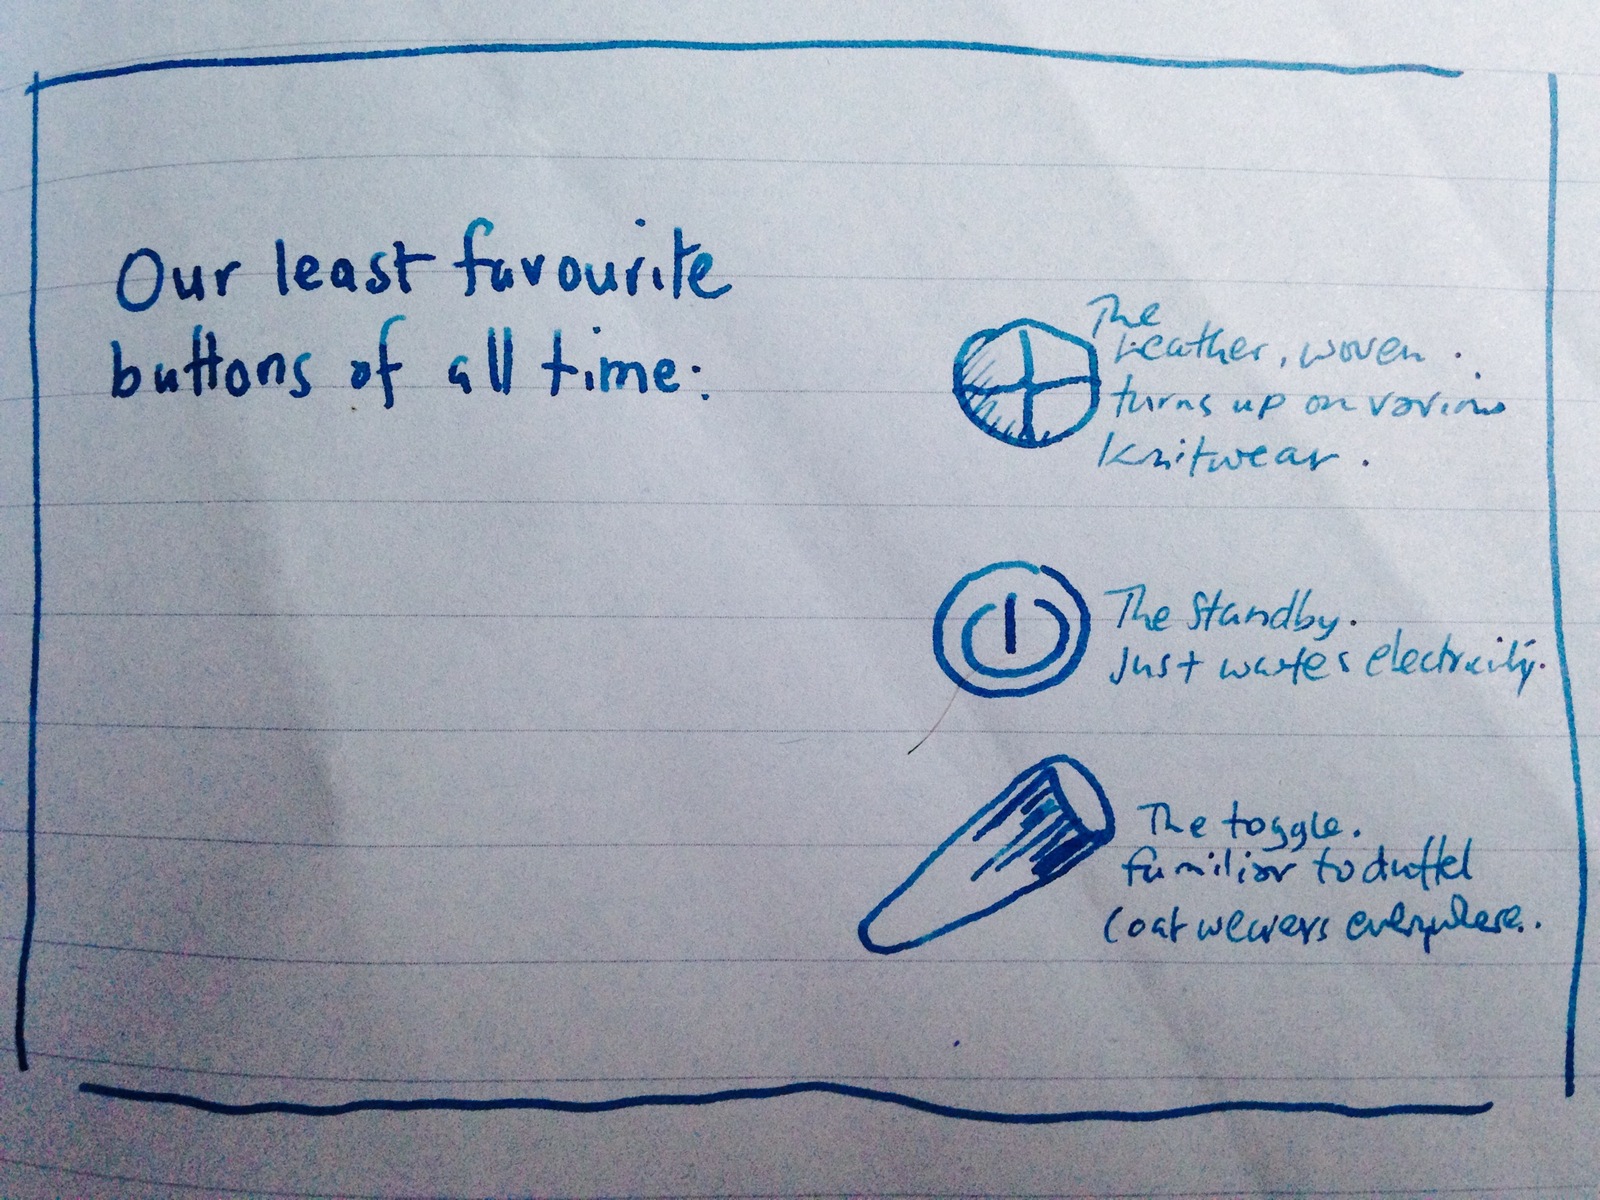 Our least favourite
buttons of all time:
The
Leather, woven.
turns up on various
knitwear.
The Standby.
Just wastes electricity.
The toggle.
familiar to duffel
coat wearers everywhere.